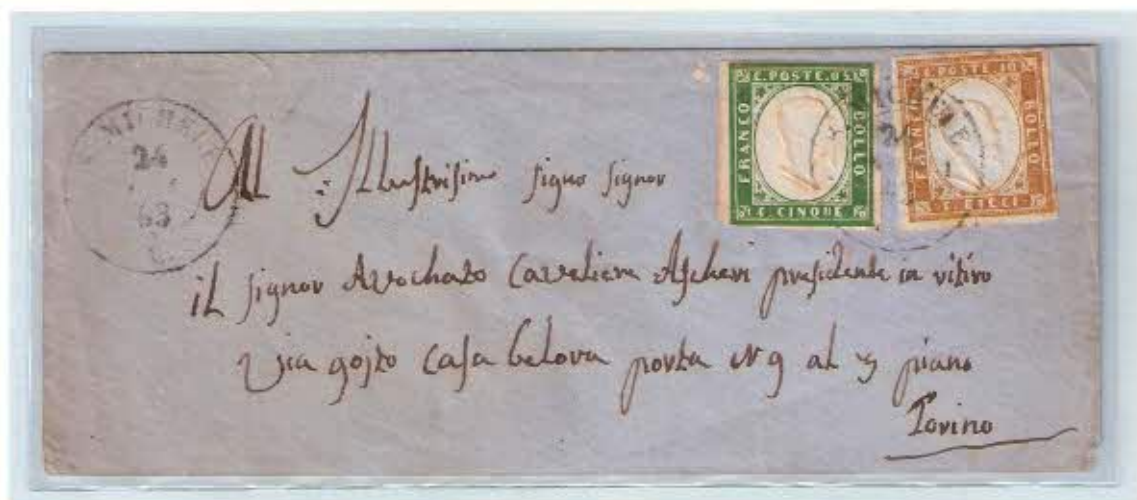 C. POSTE. 05.
FRANCO
BOLLO
C. CINQUE
C. POSTE. 10
FRANCO
BOLLO
C. DIECI
24
63
All Illustrisimo signo signor
il signor Avochato Cavaliere Ascheri presidente in vitiro
Via gojto Casa belova porta N 9 al piano
Torino